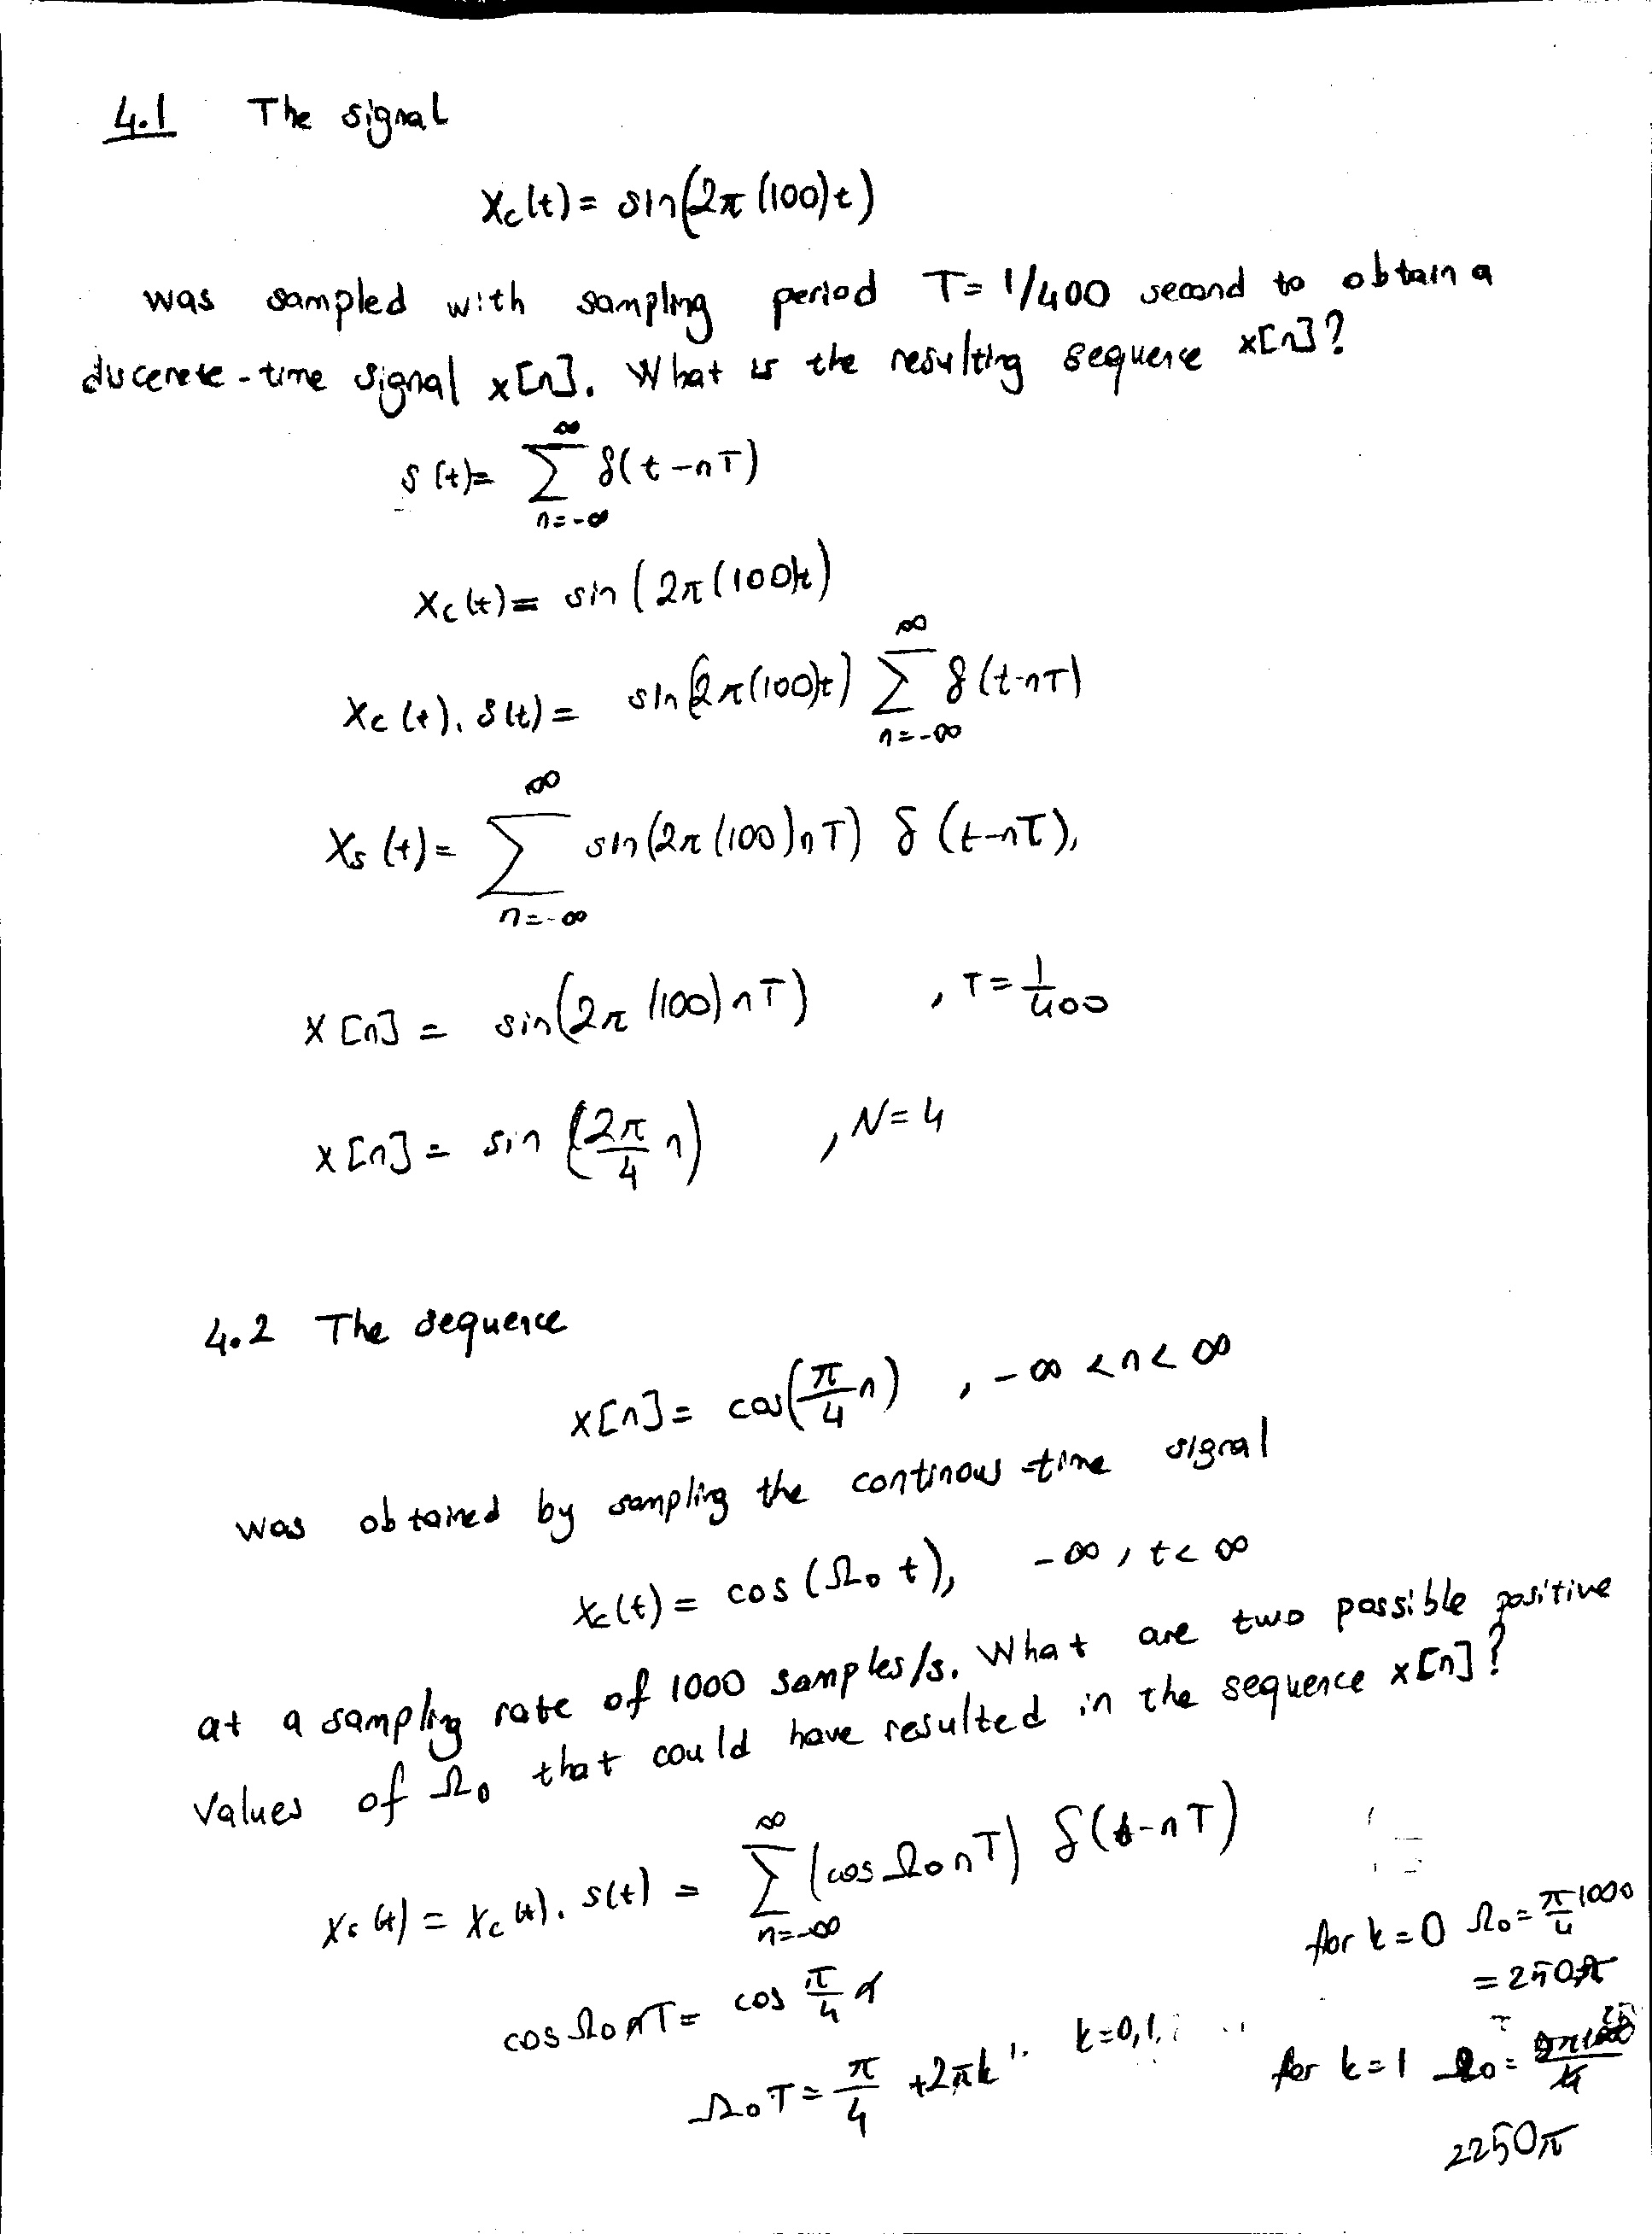 4.1 The signal
Xc(t) = sin(2π(100)t)
was sampled with sampling period T = 1/400 second to obtain a
discerete-time signal x[n]. What is the resulting sequence x[n]?
s(t) = ∑_{n=-∞}^{∞} δ(t-nT)
Xc(t) = sin(2π(100)t)
Xc(t).s(t) = sin(2π(100)t) ∑_{n=-∞}^{∞} δ(t-nT)
Xs(t) = ∑_{n=-∞}^{∞} sin(2π(100)nT) δ(t-nT),
X[n] = sin(2π(100)nT) , T = 1/400
x[n] = sin(2π/4 n) , N=4
4.2 The sequence
x[n] = cos(π/4 n) , -∞ < n < ∞
was obtained by sampling the continous-time signal
Xc(t) = cos(Ω₀t), -∞ , t < ∞
at a sampling rate of 1000 samples/s. What are two possible positive
values of Ω₀ that could have resulted in the sequence x[n]?
Xs(t) = Xc(t).s(t) = ∑_{n=-∞}^{∞} (cos Ω₀nT) δ(t-nT)
cos Ω₀nT = cos π/4 n
Ω₀T = π/4 + 2πk k=0,1,
for k=0 Ω₀ = π/4 1000
= 250π
for k=1 Ω₀ =
2250π